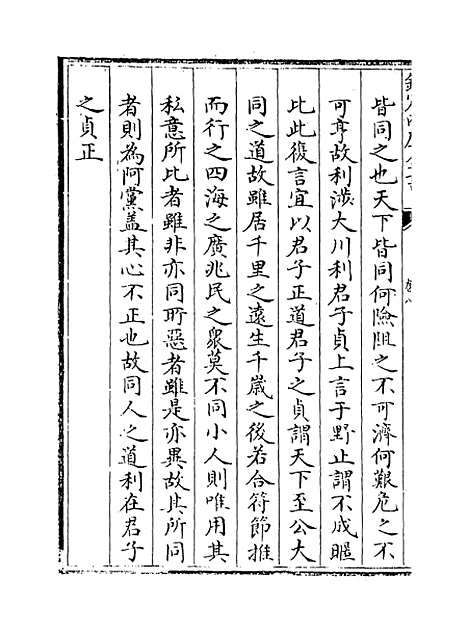 皆同之也天下皆同何險阻之不可濟何艱危之不
可亨故利涉大川利君子貞上言于野止謂不成暱
比此復言宜以君子正道君子之貞謂天下至公大
同之道故雖居千里之遠生千歳之後若合符節推
而行之四海之廣兆民之衆莫不同小人則唯用其
私意所比者雖非亦同所惡者雖是亦異故其所同
者則為阿黨盖其心不正也故同人之道利在君子
之貞正